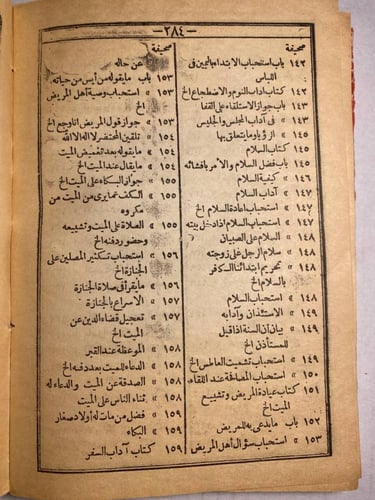 — ٢٨٤ —
صحيفة
١٤٢ باب استحباب الابتداء باليمين فى
اللباس
١٤٢ كتاب اداب النوم والاضطجاع الخ
١٤٣ باب جواز الاستلقاء على القفا
١٤٣ » فى آداب المجلس والجليس
١٤٤ » ازؤيا وما يتعلق بها
١٤٥ كتاب السلام
١٤٥ باب فضل السلام والأمر بافشائه
١٤٦ » كيفية السلام
١٤٧ » آداب السلام
١٤٧ » استحباب اعادة السلام الخ
١٤٧ » استحباب السلام اذا دخل بيته
١٤٨ » السلام على الصبيان
١٤٨ » سلام الرجل على زوجته
» تحريم ابتدائنا الكافر
بالسلام الخ
١٤٨ » استحباب السلام
١٤٨ » الاستئذان وآدابه
١٤٩ » بيان أن السنة اذا قيل
للمستأذن الخ
١٤٩ » استحباب تشميت العاطس الخ
١٥٠ » استحباب المصافحة عند اللقاء
١٥١ كتاب عيادة المريض وتشييع
الميت الخ
١٥٢ باب مايدعى به للمريض
١٥٣ » استحباب سؤال أهل المريض
صحيفة
عن حاله
١٥٣ باب مايقوله من أيس من حياته
١٥٣ » استحباب وصية أهل المريض
الخ
١٥٣ » جواز قول المريض انا وجع الخ
١٥٤ » تلقين المحتضر لااله الاالله
١٥٤ » مايقوله بعد تغميض الميت
١٥٤ » مايقال عند الميت الخ
١٥٥ » جواز البكاء على الميت الخ
١٥٥ » الكف عما يرى من الميت من
مكروه
١٥٥ » الصلاة على الميت وتشييعه
وحضور دفنه الخ
١٥٦ » استحباب تكثير المصلين على
الجنازة الخ
١٥٦ » مايقرأ فى صلاة الجنازة
١٥٧ » الاسراع بالجنازة
١٥٧ » تعجيل قضاء الدين عن
الميت الخ
١٥٨ » الموعظة عند القبر
١٥٨ » الدعاء للميت بعد دفنه الخ
١٥٨ » الصدقة عن الميت والدعاء له
١٥٨ » ثناء الناس على الميت
١٥٩ » فضل من مات له أولاد صغار
١٥٩ » البكاء
١٥٩ كتاب آداب السفر